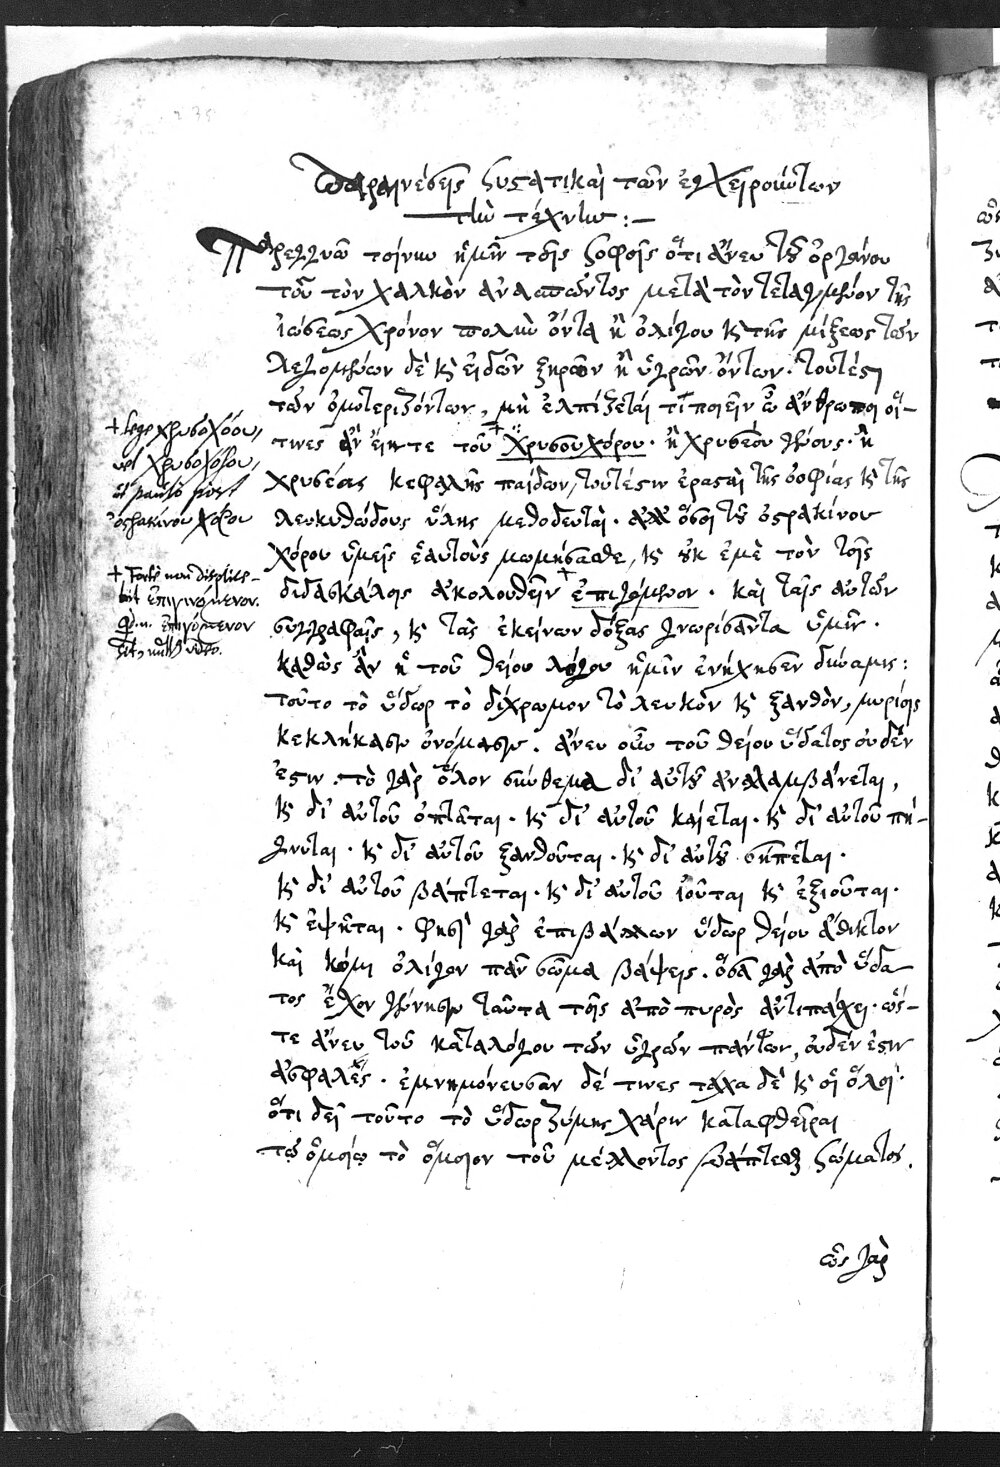 Παραινέσεις συστατικαὶ τῶν ἐγχειρούντων
τὴν τέχνην :—
Παρεγγυῶ τοίνυν ἡμῖν τοῖς σοφοῖς ὅτι ἄνευ τοῦ ὀργάνου
τοῦ τὸν χαλκὸν ἀνασπῶντος μετὰ τὸν τεταγμένον τῆς
ἰώσεως χρόνον πολὺν ὄντα ἢ ὀλίγου καὶ τῆς μίξεως τῶν
λεγομένων δὲ καὶ εἰδῶν ξηρῶν ἢ ὑγρῶν ὄντων. τουτέστι
τῶν ὁμοτεριζόντων, μὴ ἐλπίζεταί τι ποιεῖν ὦ ἄνθρωποι οἵ-
τινες ἂν εἴητε τοῦ + χρυσουχόρου. ἢ χρυσέου γένους. ἢ
χρυσέας κεφαλῆς παίδων, τουτέστιν ἐρασταὶ τῆς σοφίας καὶ τῆς
λευκυθώδους ὕλης μεθοδευταί. ἀλλ' ὅσοι τοῦ ὀστρακίνου
χόρου ὑμεῖς ἑαυτοὺς μωμήσασθε, καὶ οὐκ ἐμὲ τὸν τοῖς
διδασκάλοις ἀκολουθεῖν + ἐπιγόμενον. καὶ ταῖς αὐτῶν
συγγραφαῖς, καὶ τὰς ἐκείνων δόξας γνωρίσαντα ὑμῖν.
καθὼς ἂν ἡ τοῦ θείου λόγου ἡμῖν ἐνήχησεν δύναμις :
τοῦτο τὸ ὕδωρ τὸ δίχρωμον τὸ λευκὸν καὶ ξανθὸν, μυρίοις
κεκλήκασιν ὀνόμασιν. ἄνευ οὖν τοῦ θείου ὕδατος οὐδέν
ἐστιν. τὸ γὰρ ὅλον σύνθεμα δι' αὐτοῦ ἀναλαμβάνεται,
καὶ δι' αὐτοῦ ὀπτᾶται. καὶ δι' αὐτοῦ καίεται. καὶ δι' αὐτοῦ πή-
γνυται. καὶ δι' αὐτοῦ ξανθοῦται. καὶ δι' αὐτοῦ σήπεται.
καὶ δι' αὐτοῦ βάπτεται. καὶ δι' αὐτοῦ ἰοῦται καὶ ἐξιοῦται.
καὶ ἑψῆται. φησὶ γὰρ ἐπιβάλλων ὕδωρ θείου ἄθικτον
καὶ κόμι ὀλίγον πᾶν σῶμα βάψεις. ὅσα γὰρ ἀπὸ ὕδα-
τος ἔχον γένησιν ταῦτα τοῖς ἀπὸ πυρὸς ἀντιπάχει. ὥσ-
τε ἄνευ τοῦ καταλόγου τῶν ὑγρῶν πάντων, οὐδέν ἐστιν
ἀσφαλές. ἐμνημόνευσαν δέ τινες τάχα δὲ καὶ οἱ ὅλοι.
ὅτι δεῖ τοῦτο τὸ ὕδωρ ζύμης χάριν καταφθεῖραι
τῷ ὁμοίῳ τὸ ὅμοιον τοῦ μέλλοντος βάπτεσθαι σώματος.
ὡς γὰρ
+ lege χρυσοχόου,
vel χρυσοχόου,
ut paulo post
ὀστρακίνου χόρου
+ Forte non displice-
bit ἐπιγινόμενον.
q.m. ἐπιγόμενον
sit, nullus video.